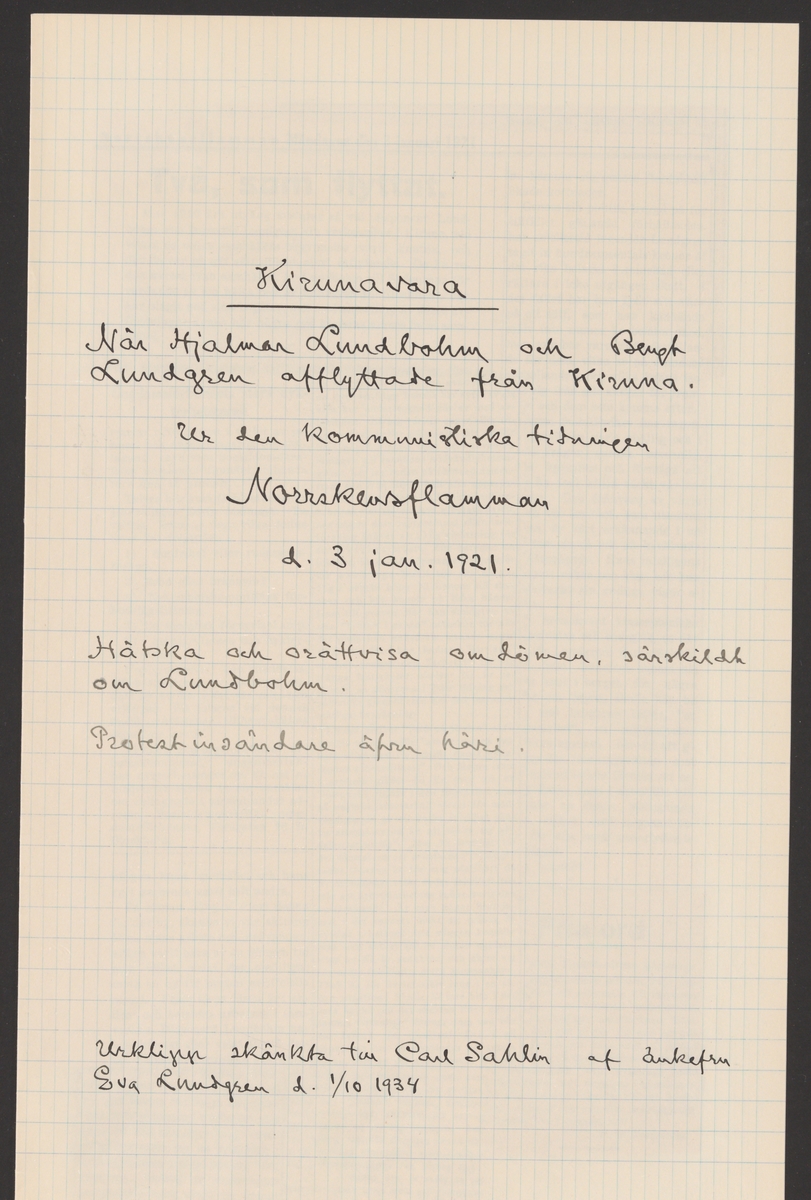 Kirunavara
När Hjalmar Lundbohm och Bengt
Lundgren afflyttade från Kiruna.
Ur den kommunistiska tidningen
Norrskensflamman
d. 3 jan. 1921.
Hätska och orättvisa omdömen, särskildt
om Lundbohm.
Protestinsändare äfven häri.
Urklipp skänkta till Carl Sahlin af änkefru
Eva Lundgren d. 1/10 1934